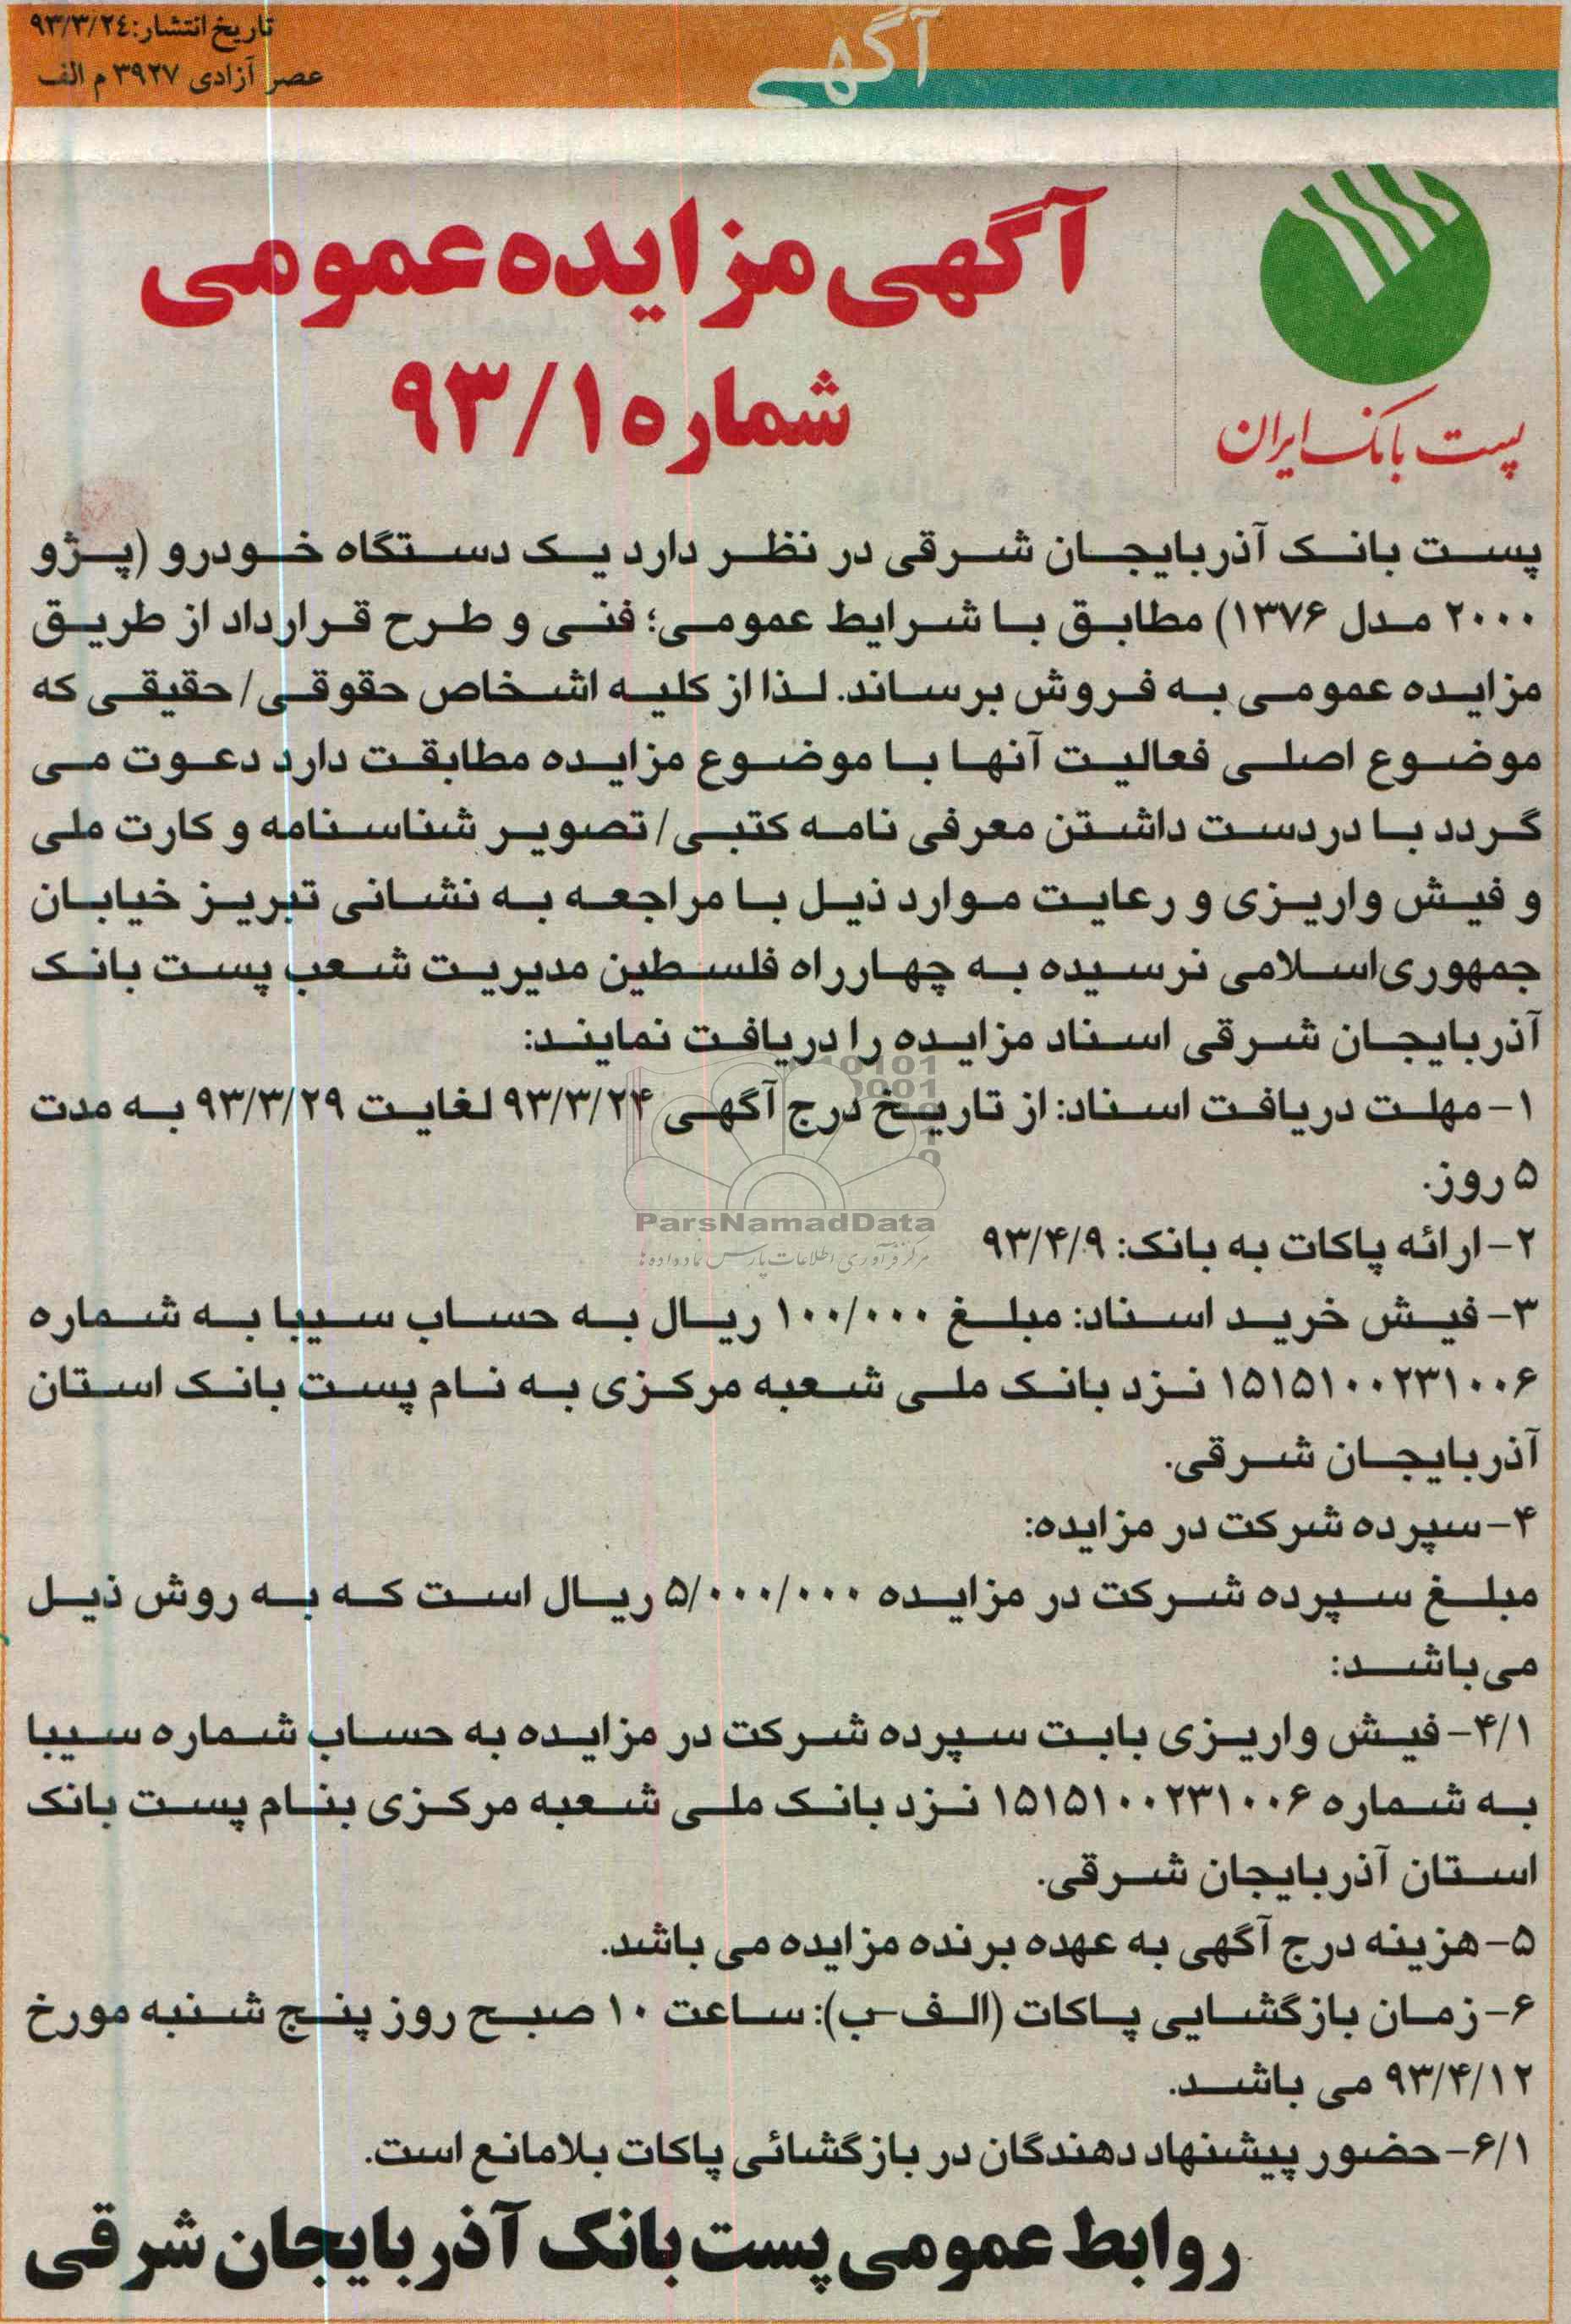 تاریخ انتشار: ۹۳/۳/۲۴
عصر آزادی ۳۹۲۷ م الف
آگهی
آگهی مزایده عمومی
شماره ۹۳/۱
پست بانک ایران
پست بانک آذربایجان شرقی در نظر دارد یک دستگاه خودرو (پژو
۲۰۰۰ مدل ۱۳۷۶) مطابق با شرایط عمومی؛ فنی و طرح قرارداد از طریق
مزایده عمومی به فروش برساند. لذا از کلیه اشخاص حقوقی/ حقیقی که
موضوع اصلی فعالیت آنها با موضوع مزایده مطابقت دارد دعوت می
گردد با در دست داشتن معرفی نامه کتبی/ تصویر شناسنامه و کارت ملی
و فیش واریزی و رعایت موارد ذیل با مراجعه به نشانی تبریز خیابان
جمهوری‌اسلامی نرسیده به چهارراه فلسطین مدیریت شعب پست بانک
آذربایجان شرقی اسناد مزایده را دریافت نمایند:
۱- مهلت دریافت اسناد: از تاریخ درج آگهی ۹۳/۳/۲۴ لغایت ۹۳/۳/۲۹ به مدت
۵ روز.
۲- ارائه پاکات به بانک: ۹۳/۴/۹
۳- فیش خرید اسناد: مبلغ ۱۰۰/۰۰۰ ریال به حساب سیبا به شماره
۱۵۱۵۱۰۰۲۳۱۰۰۶ نزد بانک ملی شعبه مرکزی به نام پست بانک استان
آذربایجان شرقی.
۴- سپرده شرکت در مزایده:
مبلغ سپرده شرکت در مزایده ۵/۰۰۰/۰۰۰ ریال است که به روش ذیل
می‌باشد:
۴/۱- فیش واریزی بابت سپرده شرکت در مزایده به حساب شماره سیبا
به شماره ۱۵۱۵۱۰۰۲۳۱۰۰۶ نزد بانک ملی شعبه مرکزی بنام پست بانک
استان آذربایجان شرقی.
۵- هزینه درج آگهی به عهده برنده مزایده می باشد.
۶- زمان بازگشایی پاکات (الف-ب): ساعت ۱۰ صبح روز پنج شنبه مورخ
۹۳/۴/۱۲ می باشد.
۶/۱- حضور پیشنهاد دهندگان در بازگشائی پاکات بلامانع است.
روابط عمومی پست بانک آذربایجان شرقی
ParsNamadData
مرکز فرآوری اطلاعات پارس نماد داده ها